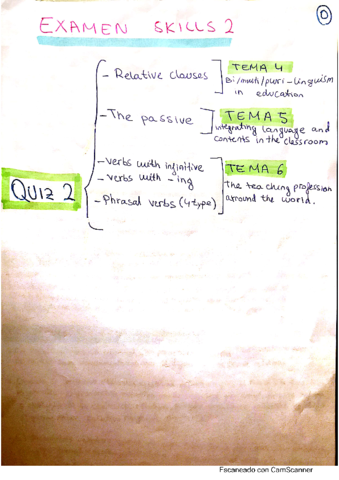 EXAMEN SKILLS 2
0
QUIZ 2
- Relative clauses
TEMA 4
Bi/multi/pluri-linguism
in education
- The passive
TEMA 5
integrating language and
contents in the classroom
- verbs with infinitive
- verbs with -ing
- Phrasal verbs (4 type)
TEMA 6
The teaching profession
arround the world.
Escaneado con CamScanner